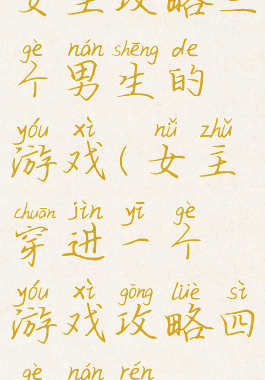 女主攻略三
gè nán shēng de
个男生的
yóu xì nǚ zhǔ
游戏(女主
chuān jìn yī gè
穿进一个
yóu xì gōng lüè sì
游戏攻略四
gè nán rén